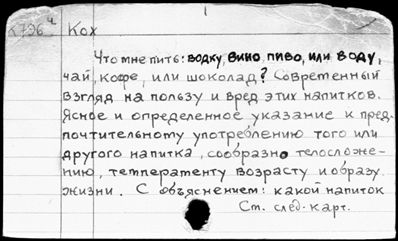 К736 ч Кох
Что мне пить: водку, вино, пиво, или воду,
чай, кофе, или шоколад? Современный
взгляд на пользу и вред этих напитков.
Ясное и определенное указание к пред-
почтительному употреблению того или
другого напитка, сообразно телосложе-
нию, темпераменту возрасту и образу
жизни. С объяснением: какой напиток
См. след. карт.